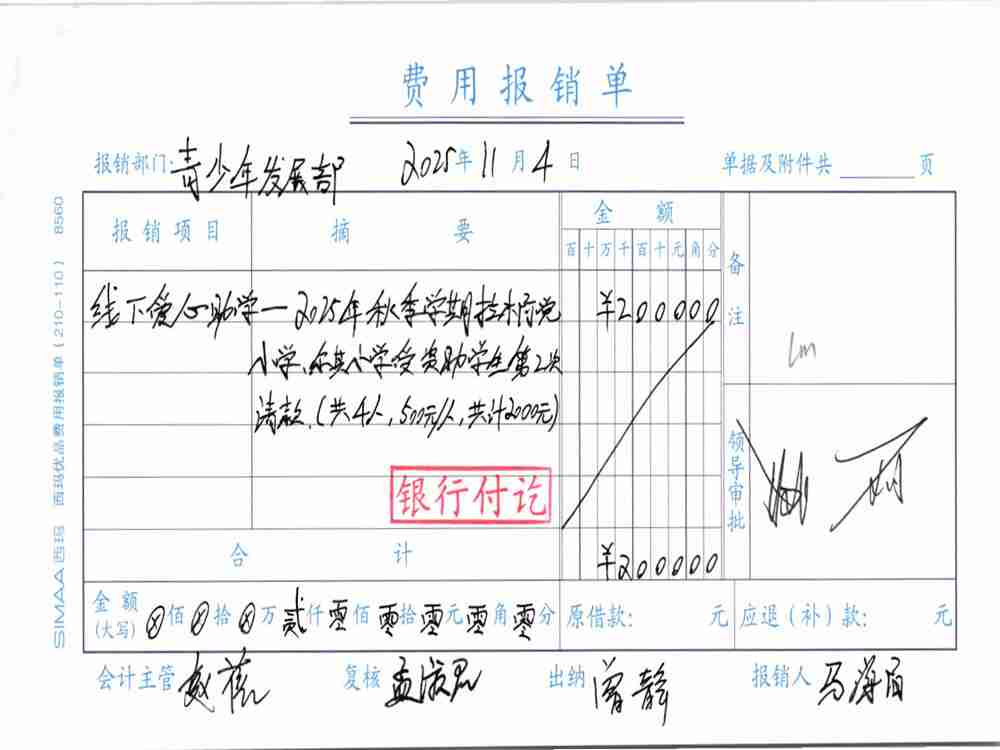 费用报销单
报销部门: 青少年发展部 2025年11月4日 单据及附件共 页
报销项目 摘要 金额 备注
百十万千百十元角分
线下爱心助学 — 2025年秋季学期 ¥200000
小学、小学受资助学生第2次
请款.(共4人,500元/人,共计2000元)
银行付讫
领导审批
合计 ¥200000
金额(大写) ⊗佰⊗拾⊗万贰仟零佰零拾零元零角零分 原借款: 元 应退(补)款: 元
会计主管 复核 出纳 曾静 报销人
SIMAA西玛 西玛优品费用报销单(210-110) 8560